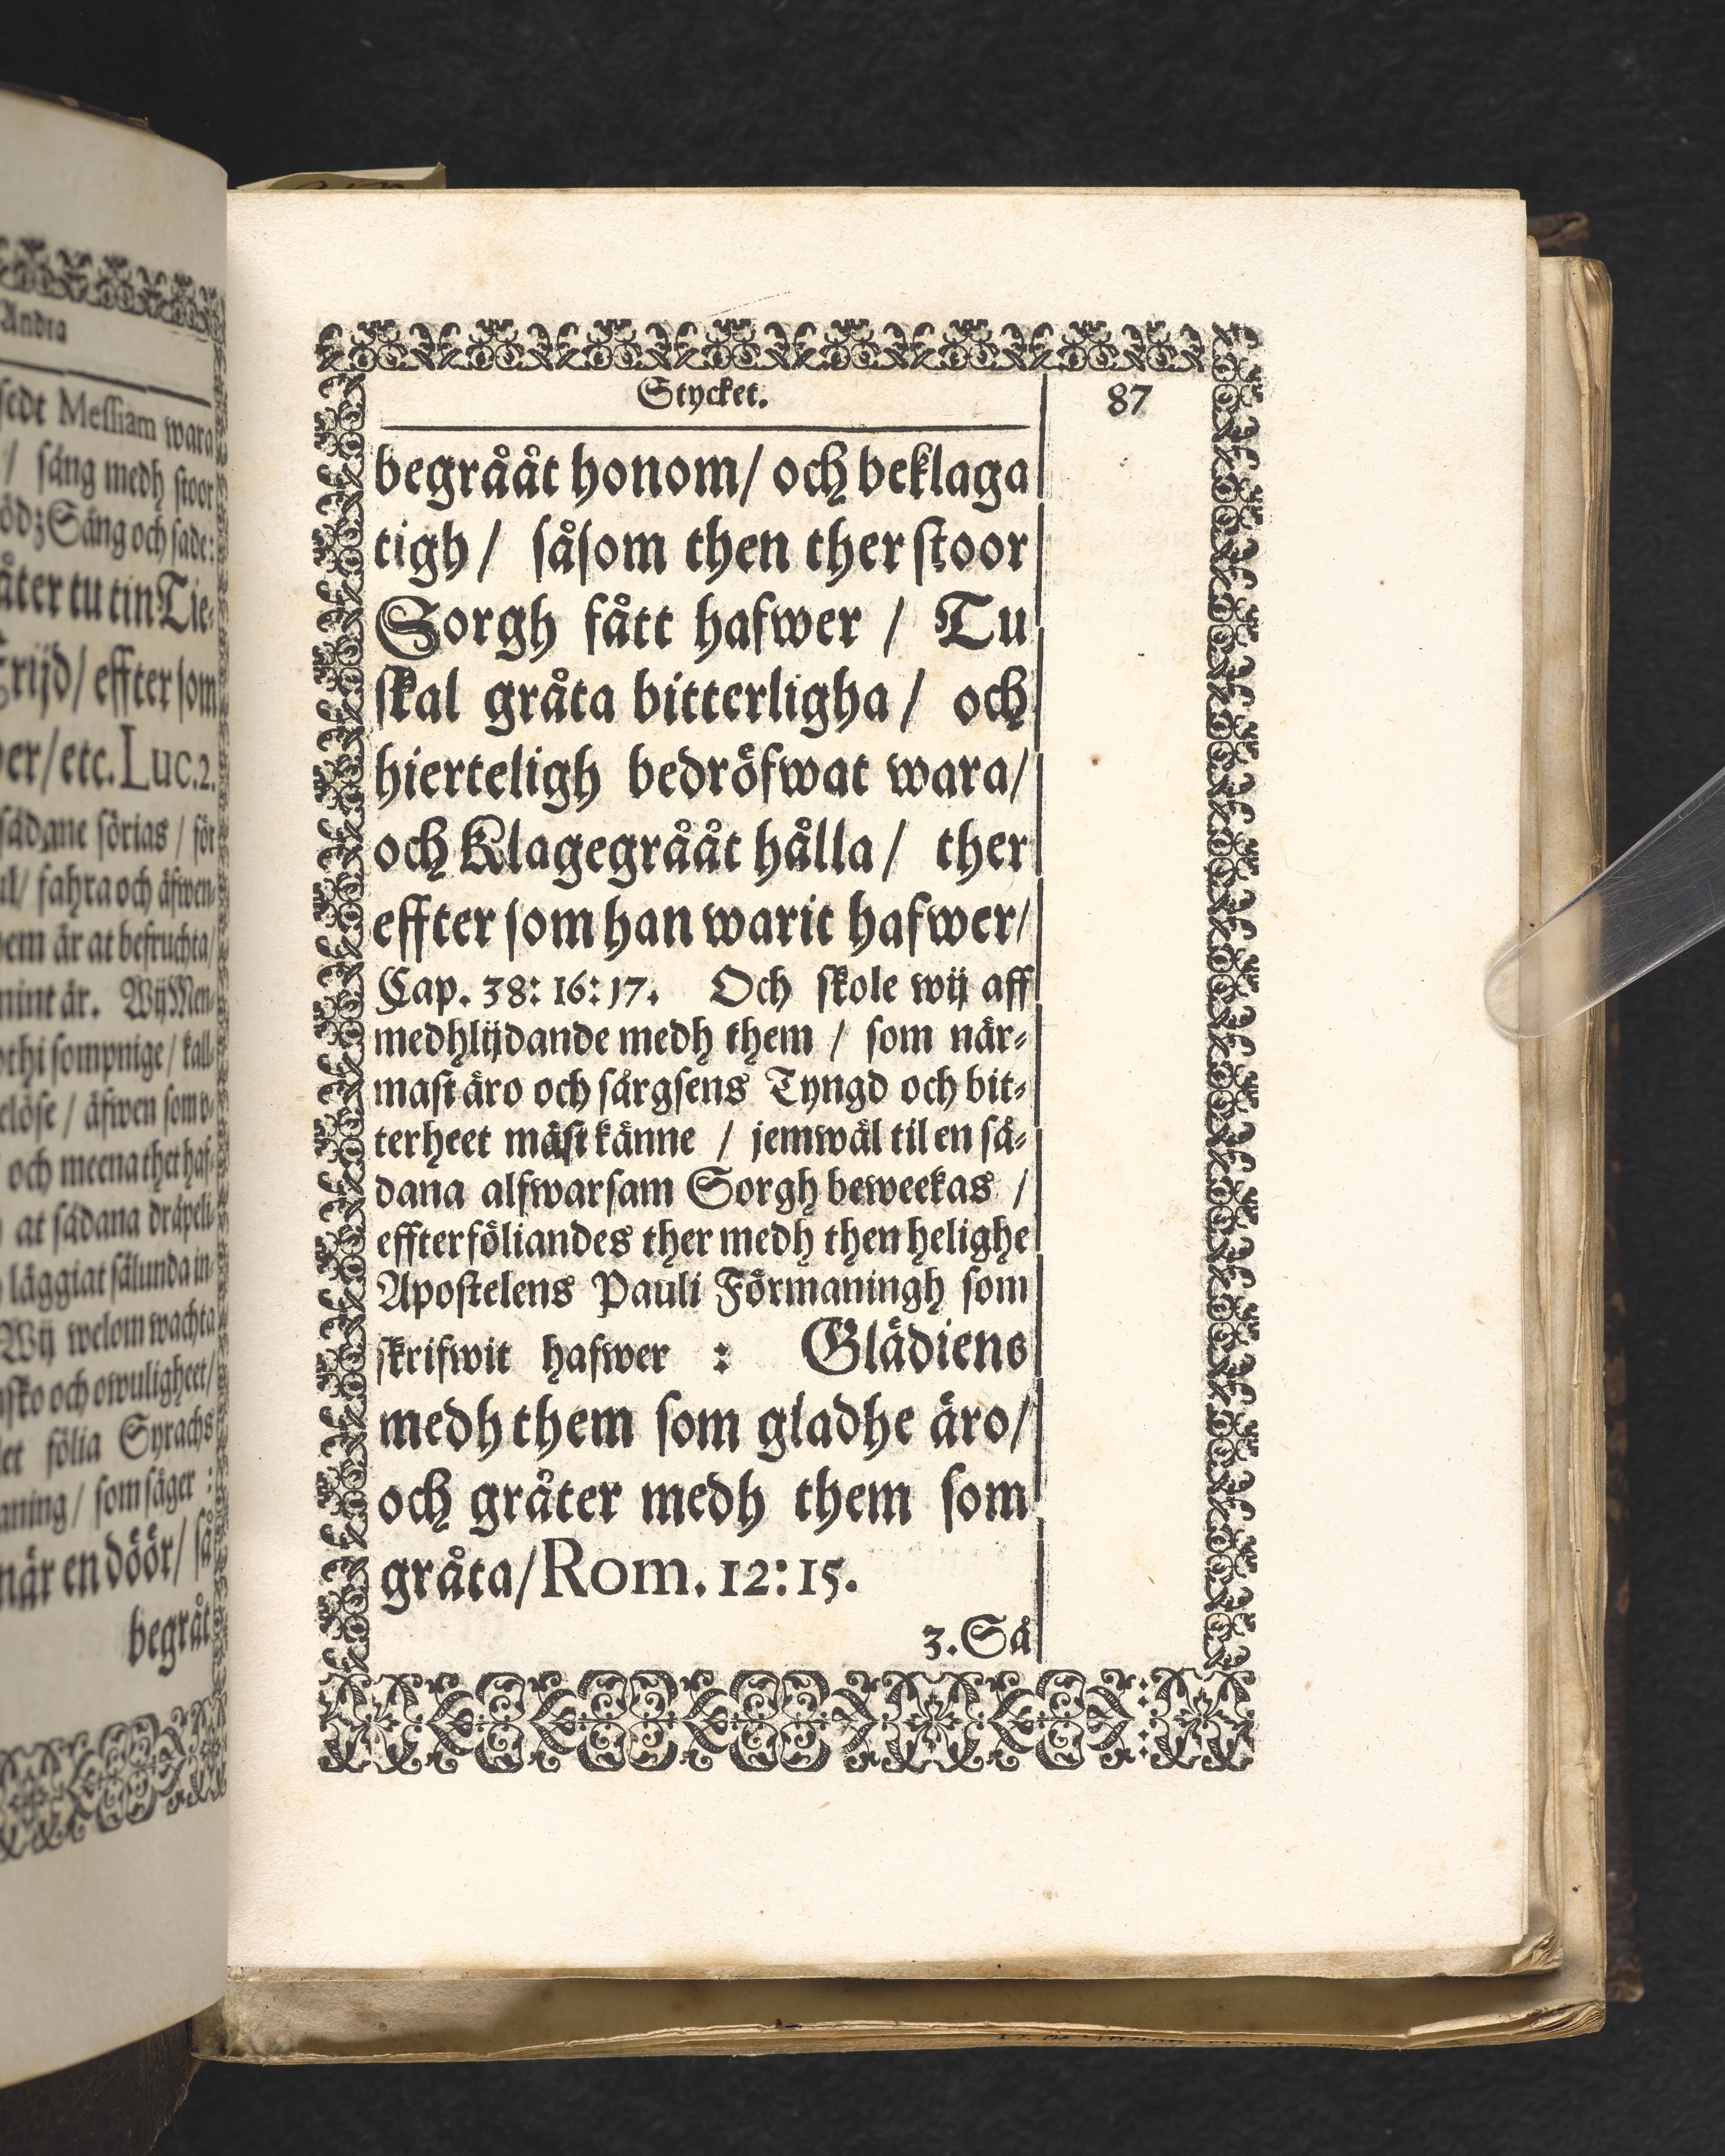 Andra
sedt Messiam wara
/ sång medh stoor
ödz Sång och sade:
åter tu tin Tie-
Frijd/ effter som
wer/etc. Luc. 2.
sådane sörjas / för
ul/ fahra och äfwen-
hem är at befruchta/
mint är. Wij Men-
othi sompnige / kall-
elöse / äfwen som o-
och meena thet haf-
at sådana dräpeli-
läggiat sålunda in-
Wij welom wachta
nsko och owuligheet/
et följa Syrachs
aning/ som säger:
när en döör/ så
begråt
Stycket. 87
begrååt honom/ och beklaga
tigh / såsom then ther stoor
Sorgh fått hafwer / Tu
skal gråta bitterligha / och
hierteligh bedröfwat wara/
och Klagegrååt hålla / ther
effter som han warit hafwer/
Cap. 38: 16: 17. Och skole wij aff
medhlijdande medh them / som när-
mast äro och sårgsens Tyngd och bit-
terheet mäst känne / jemwäl til en så-
dana alfwarsam Sorgh beweekas /
effterföliandes ther medh then helighe
Apostelens Pauli Förmaningh som
skrifwit hafwer : Glädiens
medh them som gladhe äro/
och gråter medh them som
gråta/ Rom. 12: 15.
3. Så